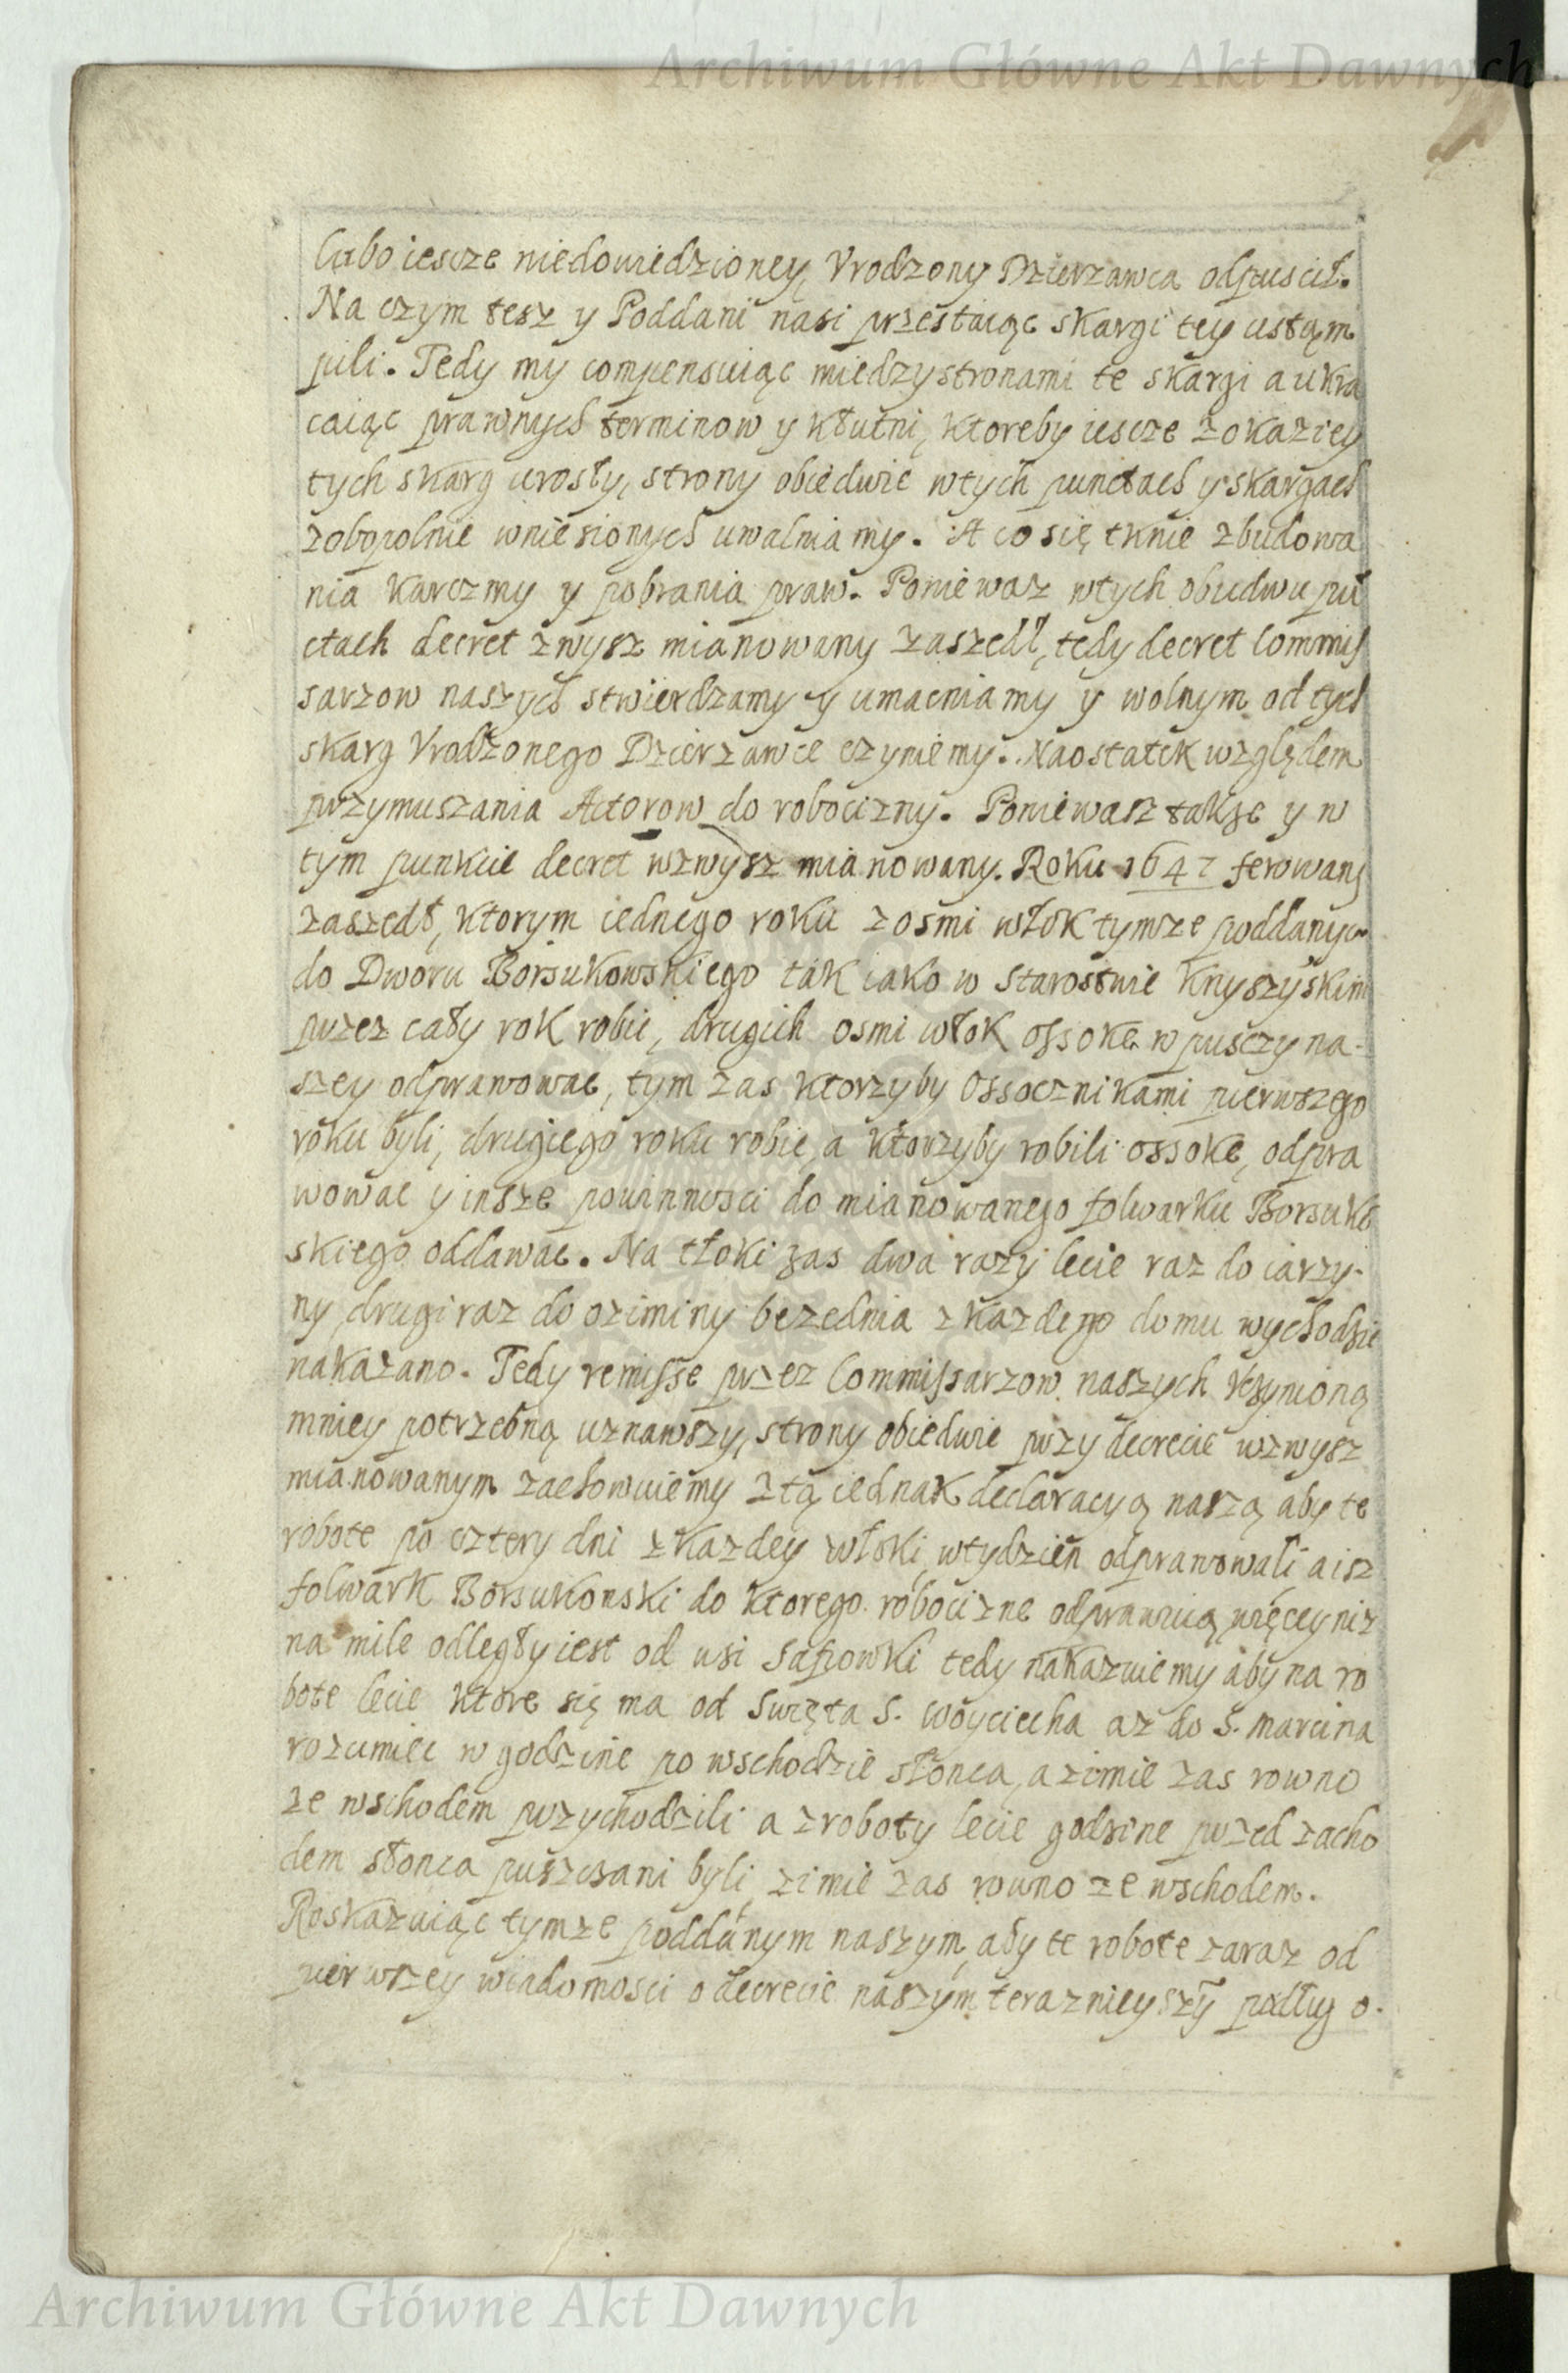 Archiwum Główne Akt Dawnych
lubo iescze niedowiedzioney, Vrodzony Dzierzawca odpuscił.
Na czym tesz y Poddani nasi przestaiąc skargi tey ustąm
pili. Tedy my compensuiąc miedzy stronami te skargi a ukra
caiąc prawnych terminow y kłutni, ktoreby iescze z okaziey
tych skarg urosły, strony obiedwie w tych punctach y skargach
zobopolnie wniesionych uwalniamy. A co się tknie zbudowa
nia karczmy y pobrania praw. Poniewaz w tych obudwu pu
ctach decret zwysz mianowany zaszedł, tedy decret Commis
sarzow naszych stwierdzamy y umacniamy y wolnym od tych
skarg Vrodzonego Dzierzawce czyniemy. Naostatek względem
przymuszania Actorow do robocizny. Poniewasz takze y w
tym punkcie decret wzwysz mianowany. Roku 1647 ferowany
zaszedł, ktorym iednego roku z osmi włok tymze poddanym
do Dworu Borsukowskiego tak iako w starostwie Knyszyskim
przez cały rok robic, drugich osmi włok ossoke w pusczy na-
szey odprawowac, tym zas ktorzyby Ossocznikami pierwszego
roku byli, drugiego roku robic, a ktorzyby robili ossoke, odpra
wowac y insze powinnosci do mianowanego folwarku Borsuko
skiego oddawac. Na tłoki zas dwa razy lecie raz do iarzy-
ny drugi raz do oziminy bezednia z kazdego domu wychodzic
nakazano. Tedy remisse przez Commissarzow naszych vczynioną
mniey potrzebną uznawszy, strony obiedwie przy decrecie wzwysz
mianowanym zachowuiemy z tą iednak declaracyą naszą aby te
robote po cztery dni z kazdey włoki, w tydzien odprawowali a isz
folwark Borsukowski do ktorego robocizne odprawuią więcey niz
na mile odległy iest od wsi Safiowki tedy nakazuiemy aby na ro
bote lecie ktore się ma od Swięta S. Woyciecha az do S. Marcina
rozumiec w godzine po wschodzie słonca, a zimie zas rowno
ze wschodem przychodzili a z roboty lecie godzine przed zacho
dem słonca puszczani byli, zimie zas rowno ze wschodem.
Roskazuiąc tymze poddanym naszym, aby te robote zaraz od
pierwszey wiadomosci o decrecie naszym teraznieyszy podług o-
Archiwum Główne Akt Dawnych